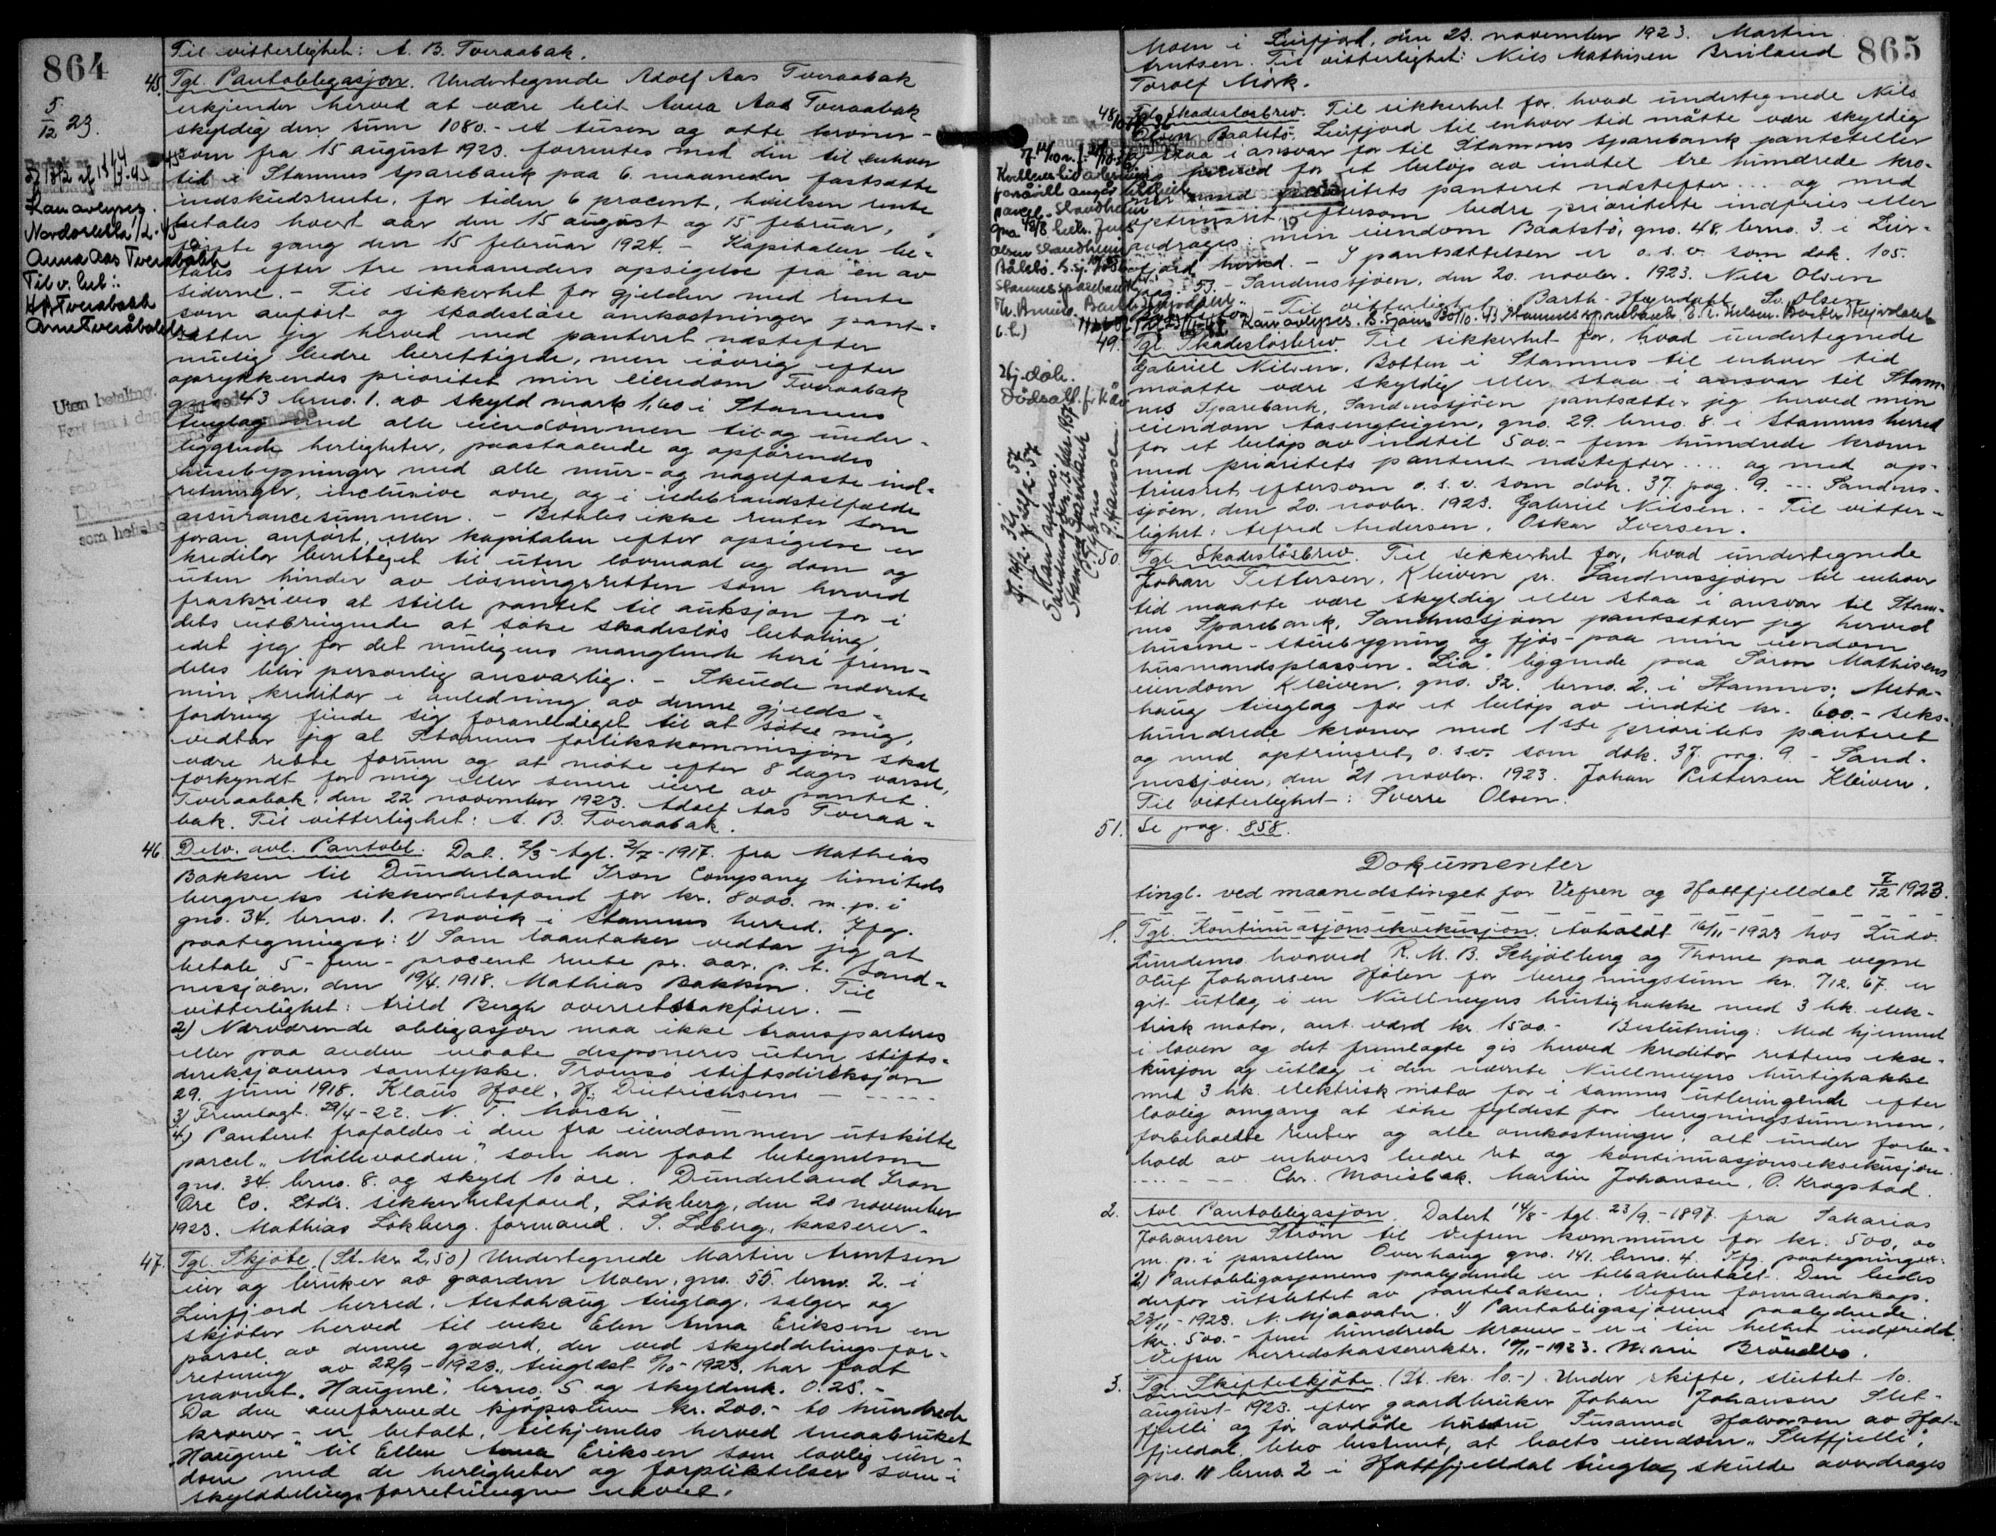 864
Til vitterlighet: A. B. Tveraabak.
45. Tgl. Pantobligasjon. Undertegnede Adolf Aas Tveraabak
erkjender herved at være blit Anna Aas Tveraabak
skyldig den sum 1080.- et tusen og otte kroner -
som fra 15 august 1923. forrentes med den til enhver
tid i Stamnes sparebank paa 6. maaneder fastsatte
indskudsrente, for tiden 6 procent, hvilken rente
betales hvert aar den 15 august og 15 februar,
første gang den 15 februar 1924. - Kapitalen be-
tales efter tre maaneders opsigelse fra en av
siderne. - Til sikkerhet for gjelden med rente
som anført og skadesløse omkostninger pant-
sætter jeg herved med panteret næstefter
mulig bedre berettigede, men iøvrig efter
oprykkendes prioritet min eiendom Tveraabak
gno. 43 brno. 1. av skyld mark 1,60 i Stamnes
tinglag med alle eiendommen til og under-
liggende herligheter, paastaaende og opførendes
husebygninger med alle mur- og nagelfaste ind-
retninger, inclusive ovne, og i ildebrandstilfælde
assurancesummen. - Betales ikke renter som
foran anført, eller kapitalen efter opsigelse er
kreditor berettiget til uten lovmaal og dom og
uten hinder av løsningsretten som herved
fraskrives at stille pantet til auksjon for i
dets utbringende at søke skadesløs betaling,
idet jeg for det muligens manglende heri frem-
deles blir personlig ansvarlig. - Skulde nævnte
min kreditor i anledning av denne gjelds-
fordring finde sig foranlediget til at søke mig,
vedtar jeg at Stamnes forlikskommisjon skal
være rette forum og at møte efter 8 dages varsel,
forkyndt for mig eller senere eiere av pantet.
Tveraabak, den 22 november 1923. Adolf Aas Tveraa-
bak. Til vitterlighet: A. B. Tveraabak.
46 Delv. avl. Pantobl. Dat. 2/3 - tgl. 2/7 - 1917. fra Mathias
Bakken til Dunderland Iron Company Limiteds
bergverks sikkerhetsfond for kr. 8000. m. p. i
gno. 34. brno. 1. Novik i Stamnes herred. Ifg.
paategninger: 1) Som laantaker vedtar jeg at
betale 5 - fem - procent rente pr. aar. p. t. Sand-
nessjøen, den 19/4. 1918. Mathias Bakken. Til
vitterlighet: Arild Bergh overretssakfører. -
2) Nærværende obligasjon maa ikke transporteres
eller paa anden maate disponeres uten stifts-
direksjonens samtykke. Tromsø stiftsdireksjon
29. juni 1918. Klaus Hoel, H. Dietrichsen
3) Fremlagt 29/4-22. N. T. Mørch.
4) Panteret frafaldes i den fra eiendommen utskilte
parcel „Møllevolden", som har faat betegnelsen
gno. 34. brno. 8. og skyld 10 øre. Dunderland Iron
Ore Co. Ltds. sikkerhetsfond, Løkberg, den 20 november
1923. Mathias Løkberg. formand. S. Løberg, kasserer -
47. Tgl. Skjøte. (St. kr 2,50) Undertegnede Martin Arntsen
eier og bruker av gaarden Moen, gno. 55. brno. 2. i
Leirfjord herred, Alstahaug tinglag, sælger og
skjøter herved til enke Elen Anna Eriksen en
parsel av denne gaard, der ved skylddelingsfor-
retning av 22/9 - 1923, tinglæst /10 - 1923. har faat
navnet „Haugene", brno. 5 og skyldmk. 0.25. -
Da den omforenede kjøpesum kr. 200.- to hundrede
kroner - er betalt, tilhjemles herved smaabruket
„Haugene" til Ellen Anna Eriksen som lovlig eien-
dom med de herligheter og forpliktelser som i
skylddelingsforretningen nævnt.
5/12 23.
Kan avlyses.
Anna Aas Tveraabakk
Til v. het:
Uten betaling.
865
Moen i Leirfjord, den 23. november 1923. Martin
Arntsen. Til vitterlighet: Nils Mathisen Breiland
Torolf Mørk.
48. Tgl. Skadesløsbrev. Til sikkerhet for hvad undertegnede Nils
Olsen Baatstø, Leirfjord til enhver tid måtte være skyldig
eller staa i ansvar for til Stamnes sparebank pantstiller
jeg herved for et beløp av indtil tre hundrede kro-
ner med prioritets panteret næstefter ... og med
optrinsret eftersom bedre prioriterte indfries eller
avdrages: min eiendom Baatstø, gno. 48, brno. 3. i Leir-
fjord herred. - I pantsættelsen er o. s. v. som dok. 105.
pag. 53. - Sandnessjøen, den 20. novbr. 1923. Nils Olsen
Baatstø. - Til vitterlighet: Barth. Høyndahl. Sv. Olsen
49. Tgl. Skadesløsbrev. Til sikkerhet for, hvad undertegnede
Gabriel Nilsen, Botten i Stamnes til enhver tid
maatte være skyldig eller staa i ansvar til Stam-
nes Sparebank, Sandnessjøen pantsætter jeg herved min
eiendom Aasengteigen, gno. 29. brno. 8. i Stamnes herred
for et beløp av indtil 500.- fem hundrede kroner
med prioritets panteret næstefter .... og med op-
trinsret eftersom o. s. v. som dok. 37. pag. 9. --- Sandnes-
sjøen, den 20. novbr. 1923. Gabriel Nilsen. - Til vitter-
lighet: Alfred Andersen, Oskar Iversen.
50. Tgl. Skadesløsbrev. Til sikkerhet for, hvad undertegnede
Johan Pettersen, Kleiven pr. Sandnessjøen til enhver
tid maatte være skyldig eller staa i ansvar til Stam-
nes Sparebank, Sandnessjøen pantsætter jeg herved
husene - stuebygning og fjøs - paa min eiendom
husmandsplassen „Lia", liggende paa Søren Mathisens
eiendom Kleiven, gno. 32. brno. 2. i Stamnes, Alsta-
haug tinglag for et beløp av indtil kr. 600.- seks-
hundrede kroner med 1ste prioritets panteret
og med optrinsret, o. s. v. som dok. 37 pag. 9 - Sand-
nessjøen, den 21 novbr. 1923. Johan Pettersen Kleiven.
Til vitterlighet -: Sverre Olsen.
51. Se pag. 858.
Dokumenter
tingl. ved maanedstinget for Vefsn og Hattfjelldal 7/12 1923.
1. Tgl. Kontinuasjonsekseksusjon. Avholdt 16/11 - 1923 hos Ludv.
Lundemo hvorved R. M. B. Schjølberg og Thorne paa vegne
Oluf Johansen Holen for beregningssum kr. 712.67. er
git utlæg i en Nullmeyers hurtighakke med 3 hk. elek-
trisk motor, ant. værd kr. 1500.- Beslutning: Med hjemmel
i loven og det fremlagte gis herved kreditor rettens ekse-
kusjon og utlæg i den nævnte Nullmeyers hurtighakke
med 3 hk. elektrisk motor for i sammes utbringende efter
lovlig omgang at søke fyldest for beregningssummen,
forbeholdte renter og alle omkostninger, alt under forbe-
hold av enhvers bedre ret og kontinuasjonseksekusjon.
Chr. Morisbak. Martin Johansen, O. Krogstad.
2. Avl. Pantobligasjon. Datert 14/8 - tgl. 23/9. - 1897. fra Sakarias
Johansen Strøm til Vefsen kommune for kr. 500,00
m. p. i parsellen Overhaug gno. 141. brno. 4. Ifg. paategninger:
2) Pantobligasjonens paalydende er tilbakebetalt. Den bedes
derfor utslettet av panteboken. Vefsn formandskap.
23/11 - 1923. N. Mjaavatn. 1) Pantobligasjonens paalydende
kr. 500.- fem hundrede kroner - er i sin helhet indfridd.
Vefsn herredskasserer 17/11 - 1923. Brøndbo.
3. Tgl. Skifteskjøte. (St. kr. 10.-) Under skifte, sluttet 10.
august 1923. efter gaardbruker Johan Johansen Slet-
fjelli og før avdøde hustru Susanna Halvorsen av Hat-
fjeldal, blev bestemt, at boets eiendom „Sletfjelli",
gno. 11 brno. 2 i Hattfjelldal tinglag skulde avvdrages